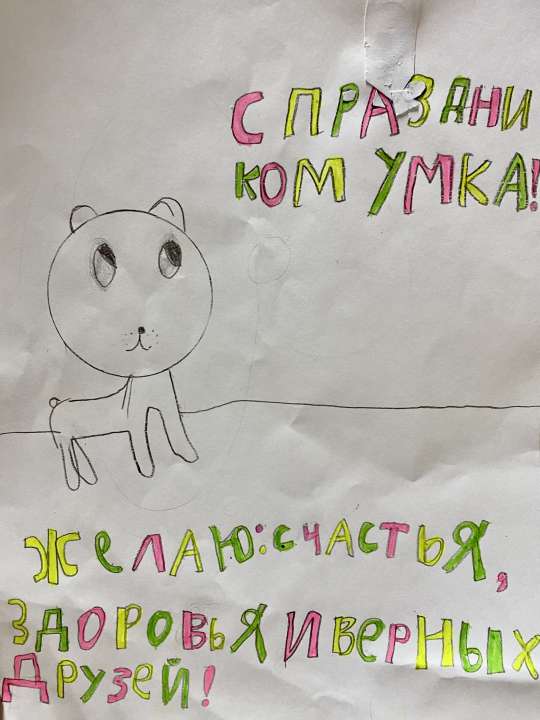 С ПРАЗДНИ
КОМ УМКА!
ЖЕЛАЮ: СЧАСТЬЯ,
ЗДОРОВЬЯ И ВЕРНЫХ
ДРУЗЕЙ!